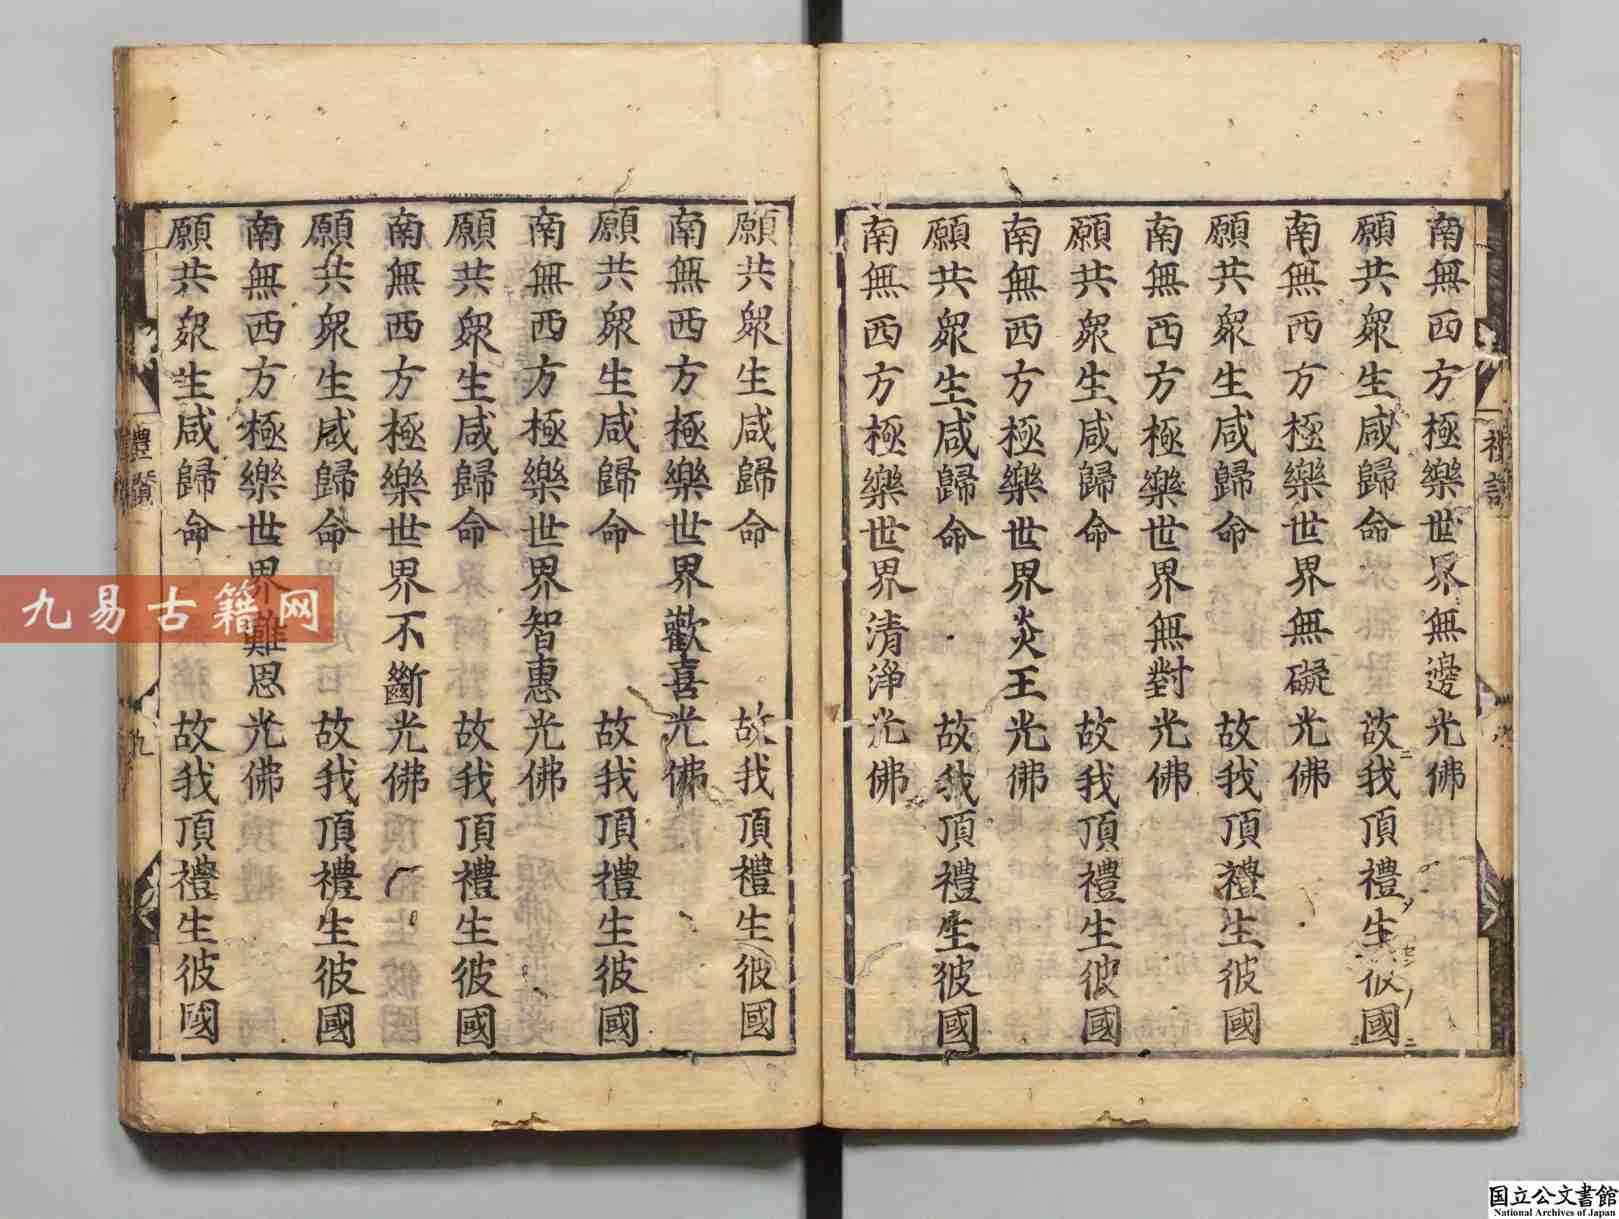 南無西方極樂世界無邊光佛
願共衆生咸歸命　故我頂禮生彼國
南無西方極樂世界無礙光佛
願共衆生咸歸命　故我頂禮生彼國
南無西方極樂世界無對光佛
願共衆生咸歸命　故我頂禮生彼國
南無西方極樂世界炎王光佛
願共衆生咸歸命　故我頂禮生彼國
南無西方極樂世界清淨光佛
願共衆生咸歸命　故我頂禮生彼國
南無西方極樂世界歡喜光佛
願共衆生咸歸命　故我頂禮生彼國
南無西方極樂世界智惠光佛
願共衆生咸歸命　故我頂禮生彼國
南無西方極樂世界不斷光佛
願共衆生咸歸命　故我頂禮生彼國
南無西方極樂世界難思光佛
願共衆生咸歸命　故我頂禮生彼國
禮讚
九
九易古籍网
国立公文書館
National Archives of Japan